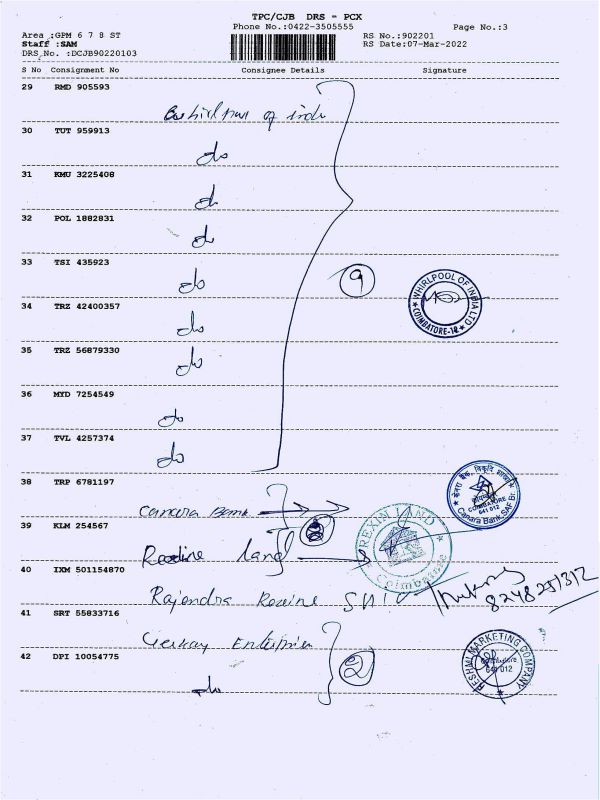 TPC/CJB DRS = PCX
Phone No.:0422-3505555
Page No.:3
Area :GPM 6 7 8 ST
RS No.:902201
Staff :SAM
RS Date:07-Mar-2022
DRS No. :DCJB90220103
S No Consignment No Consignee Details Signature
29 RMD 905593
of
30 TUT 959913
do
31 KMU 3225408
do
32 POL 1882831
do
33 TSI 435923
do
9
WHIRLPOOL OF INDIA LTD
COIMBATORE-12
34 TRZ 42400357
do
35 TRZ 56879330
do
36 MYD 7254549
do
37 TVL 4257374
do
38 TRP 6781197
Canara Bank
COIMBATORE
641 012
Canara Bank, SAF Br.
39 KLM 254567
land
REXIN LAND
Coimbatore
40 IXM 501154870
Rajendra Rexine
41 SRT 55833716
Enterprises
42 DPI 10054775
do
2
RESHMI MARKETING COMPANY
Coimbatore
641 012